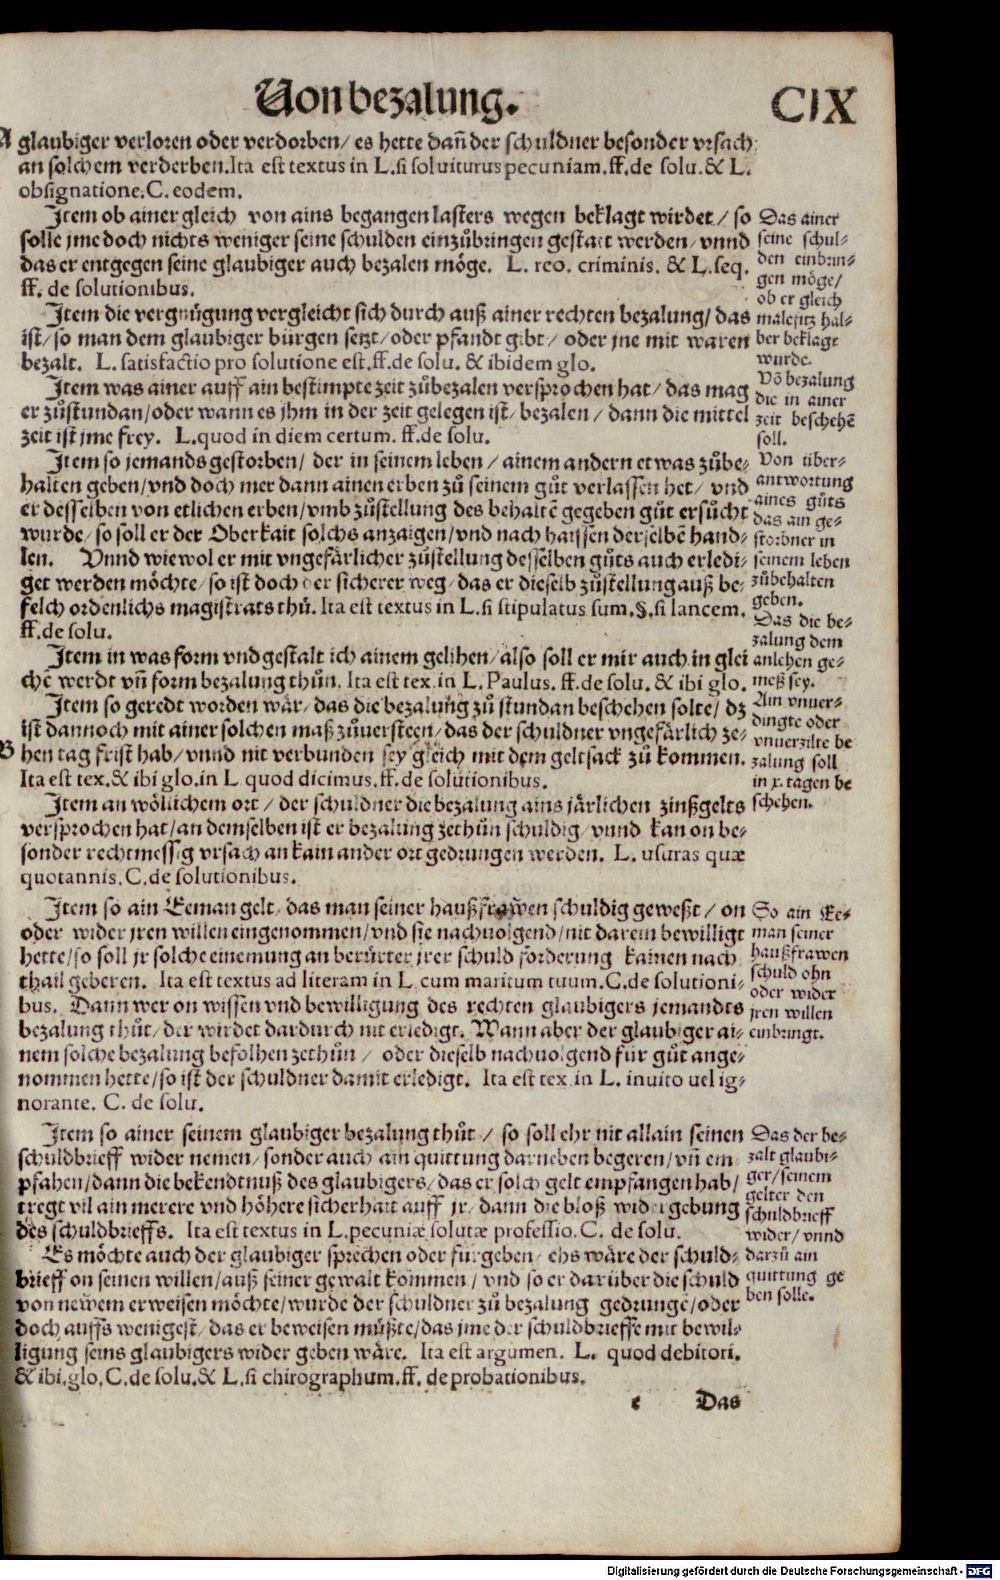 Von bezalung.
CIX
A glaubiger verloren oder verdorben/ es hette dañ der schuldner besonder vrsach
an solchem verderben. Ita est textus in L. si soluiturus pecuniam. ff. de solu. & L.
obsignatione. C. eodem.
Item ob ainer gleich von ains begangen lasters wegen beklagt wirdet/ so
solle jme doch nichts weniger seine schulden einzůbringen gestatt werden/ vnnd
das er entgegen seine glaubiger auch bezalen möge. L. reo. criminis. & L. seq.
ff. de solutionibus.
Das ainer
seine schul=
den einbrin=
gen möge/
ob er gleich
malefitz hal=
ber beklagt
wurde.
Item die vergnügung vergleicht sich durch auß ainer rechten bezalung/ das
ist/ so man dem glaubiger bürgen setzt/ oder pfandt gibt/ oder jne mit waren
bezalt. L. satisfactio pro solutione est. ff. de solu. & ibidem glo.
Item was ainer auff ain bestimpte zeit zůbezalen versprochen hat/ das mag
er zůstundan/ oder wann es jhm in der zeit gelegen ist/ bezalen/ dann die mittel
zeit ist jme frey. L. quod in diem certum. ff. de solu.
Võ bezalung
die in ainer
zeit beschehẽ
soll.
Item so jemands gestorben/ der in seinem leben/ ainem andern etwas zůbe=
halten geben/ vnd doch mer dann ainen erben zů seinem gůt verlassen het/ vnd
er desselben von etlichen erben/ vmb zůstellung des behaltẽ gegeben gůt ersůcht
wurde/ so soll er der Oberkait solchs anzaigen/ vnd nach haissen derselbẽ hand=
len. Vnnd wiewol er mit vngefärlicher zůstellung desselben gůts auch erledi=
get werden möchte/ so ist doch der sicherer weg/ das er dieselb zůstellung auß be=
felch ordenlichs magistrats thů. Ita est textus in L. si stipulatus sum. §. si lancem.
ff. de solu.
Von über=
antwortung
aines gůts
das ain ge=
storbner in
seinem leben
zůbehalten
geben.
Item in was form vnd gestalt ich ainem gelihen/ also soll er mir auch in glei
chẽ werdt vñ form bezalung thůn. Ita est tex. in L. Paulus. ff. de solu. & ibi glo.
Das die be=
zalung dem
anlehen ge=
meß sey.
Item so geredt worden wär/ das die bezalung zů stundan beschehen solte/ dz
ist dannoch mit ainer solchen maß zůuersteen/ das der schuldner vngefärlich ze=
B hen tag frist hab/ vnnd nit verbunden sey gleich mit dem geltsack zů kommen.
Ita est tex. & ibi glo. in L. quod dicimus. ff. de solutionibus.
Ain vnuer=
dingte oder
vnuerzilte be
zalung soll
in x. tagen be
schehen.
Item an wölichem ort/ der schuldner die bezalung ains järlichen zinßgelts
versprochen hat/ an demselben ist er bezalung zethůn schuldig/ vnnd kan on be=
sonder rechtmessig vrsach an kain ander ort gedrungen werden. L. usuras quæ
quotannis. C. de solutionibus.
Item so ain Eeman gelt/ das man seiner haußfrawen schuldig geweßt/ on
oder wider jren willen eingenommen/ vnd sie nachuolgend/ nit darein bewilligt
hette/ so soll jr solche einemung an berürter jrer schuld förderung kainen nach
thail geberen. Ita est textus ad literam in L. cum maritum tuum. C. de solutioni=
bus. Dann wer on wissen vnd bewilligung des rechten glaubigers jemandts
bezalung thůt/ der wirdet dardurch nit erledigt. Wann aber der glaubiger ai=
nem solche bezalung befolhen zethůn/ oder dieselb nachuolgend für gůt ange=
nommen hette/ so ist der schuldner damit erledigt. Ita est tex. in L. inuito uel ig=
norante. C. de solu.
So ain Ee=
man seiner
haußfrawen
schuld ohn
oder wider
jren willen
einbringt.
Item so ainer seinem glaubiger bezalung thůt/ so soll ehr nit allain seinen
schuldbrieff wider nemen/ sonder auch ain quittung darneben begeren/ vñ em
pfahen/ dann die bekendtnuß des glaubigers/ das er solch gelt empfangen hab/
tregt vil ain merere vnd höhere sicherhait auff jr/ dann die bloß widergebung
des schuldbrieffs. Ita est textus in L. pecuniæ solutæ professio. C. de solu.
Das der be=
zalt glaubi=
ger/ seinem
gelter den
schuldbrieff
wider/ vnnd
darzů ain
quittung ge
ben solle.
Es möchte auch der glaubiger sprechen oder fürgeben/ ehs wäre der schuld=
brieff on seinen willen/ auß seiner gewalt kommen/ vnd so er darüber die schuld
von newem erweisen möchte/ wurde der schuldner zů bezalung gedrungẽ/ oder
doch auffs wenigest/ das er beweisen müßte/ das jme der schuldbrieffe mit bewil=
ligung seins glaubigers wider geben wäre. Ita est argumen. L. quod debitori.
& ibi. glo. C. de solu. & L. si chirographum. ff. de probationibus.
e Das
Digitalisierung gefördert durch die Deutsche Forschungsgemeinschaft - DFG